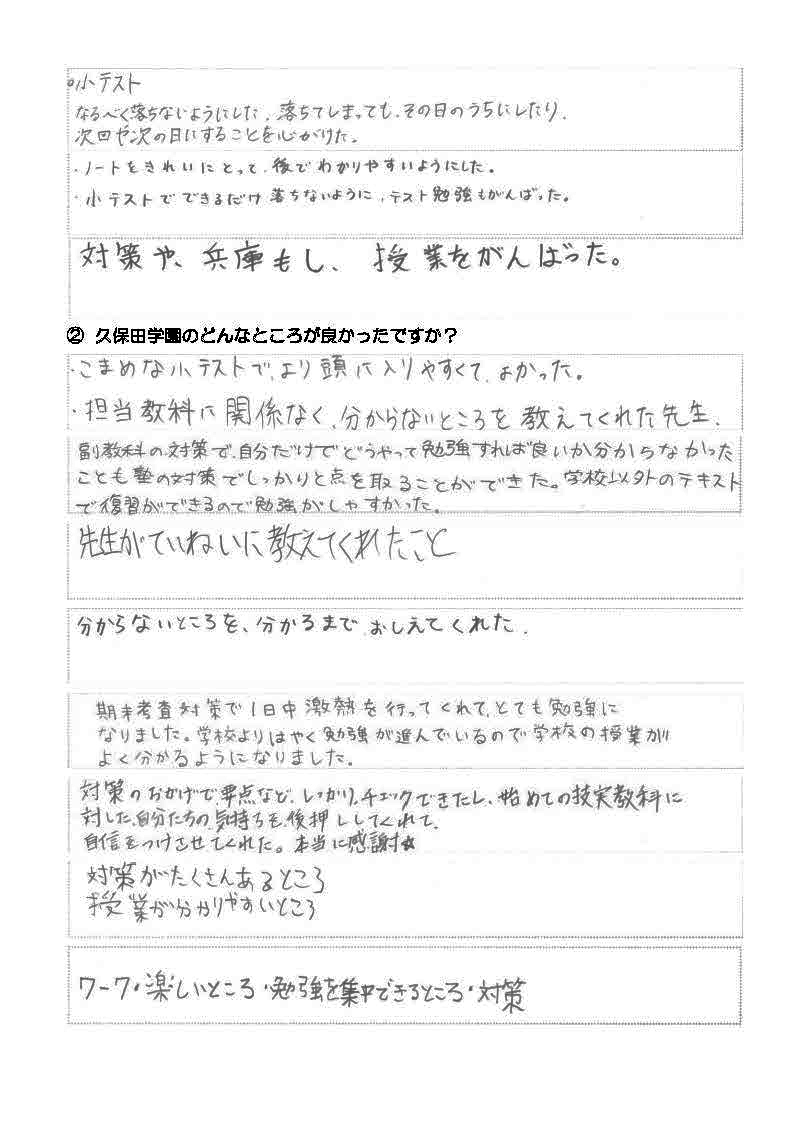 ○小テスト
なるべく落ちないようにした。落ちてしまっても、その日のうちにしたり、
次回や次の日にすることを心がけた。
・ノートをきれいにとって、後でわかりやすいようにした。
・小テストでできるだけ落ちないように、テスト勉強もがんばった。
対策や、兵庫もし、授業をがんばった。
② 久保田学園のどんなところが良かったですか？
・こまめな小テストで、より頭に入りやすくて、よかった。
・担当教科に関係なく、分からないところを教えてくれた先生。
副教科の対策で、自分だけでどうやって勉強すれば良いか分からなかった
ことも塾の対策でしっかりと点を取ることができた。学校以外のテキスト
で復習ができるので勉強がしやすかった。
先生がていねいに教えてくれたこと
分からないところを、分かるまでおしえてくれた。
期末考査対策で1日中激熱を行ってくれて、とても勉強に
なりました。学校よりはやく勉強が進んでいるので学校の授業が
よく分かるようになりました。
対策のおかげで、要点など、しっかり、チェックできたし、始めての技実教科に
対した、自分たちの、気持ちを、後押ししてくれて、
自信をつけさせてくれた。本当に感謝☆
対策がたくさんあるところ
授業が分かりやすいところ
ワーク・楽しいところ・勉強を集中できるところ・対策